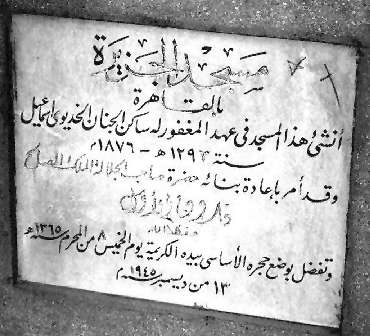 مسجد الجزيرة
بالقاهرة
أنشئ هذا المسجد في عهد المغفور له ساكن الجنان الخديوي اسماعيل
سنة ١٢٩٣ هـ - ١٨٧٦ م
وقد أمر بإعادة بنائه حضرة صاحب الجلالة الملك الصالح
فاروق الأول
حفظه الله
وتفضل بوضع حجره الأساسي بيده الكريمة يوم الخميس ٨ من المحرم سنة ١٣٦٥ هـ
١٣ من ديسمبر سنة ١٩٤٥ م